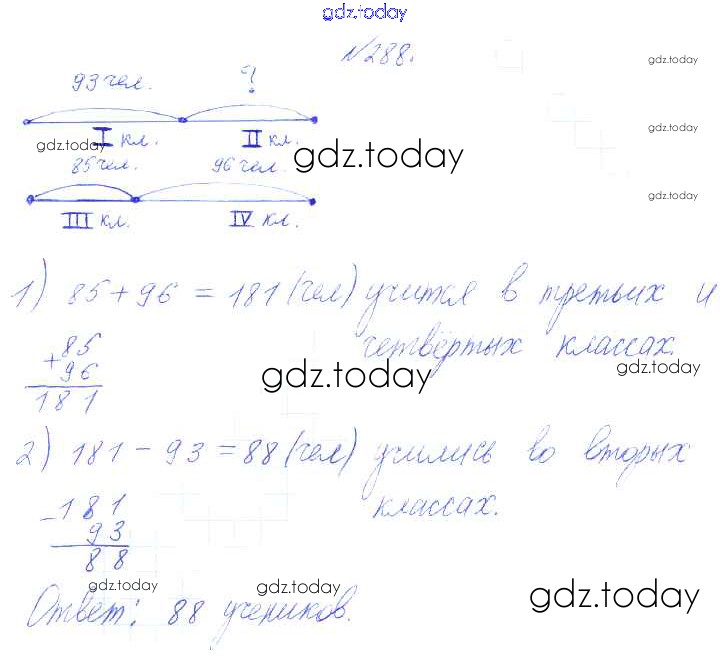 gdz.today
№288.
gdz.today
93 чел. ?
I кл. II кл.
gdz.today
gdz.today
85 чел. 96 чел.
gdz.today
gdz.today
III кл. IV кл.
1) 85 + 96 = 181 (чел) учится в третьих и
четвёртых классах.
+85
96
181
gdz.today
gdz.today
2) 181 - 93 = 88 (чел) учились во вторых
классах.
-181
93
88
gdz.today
gdz.today
gdz.today
Ответ: 88 учеников.